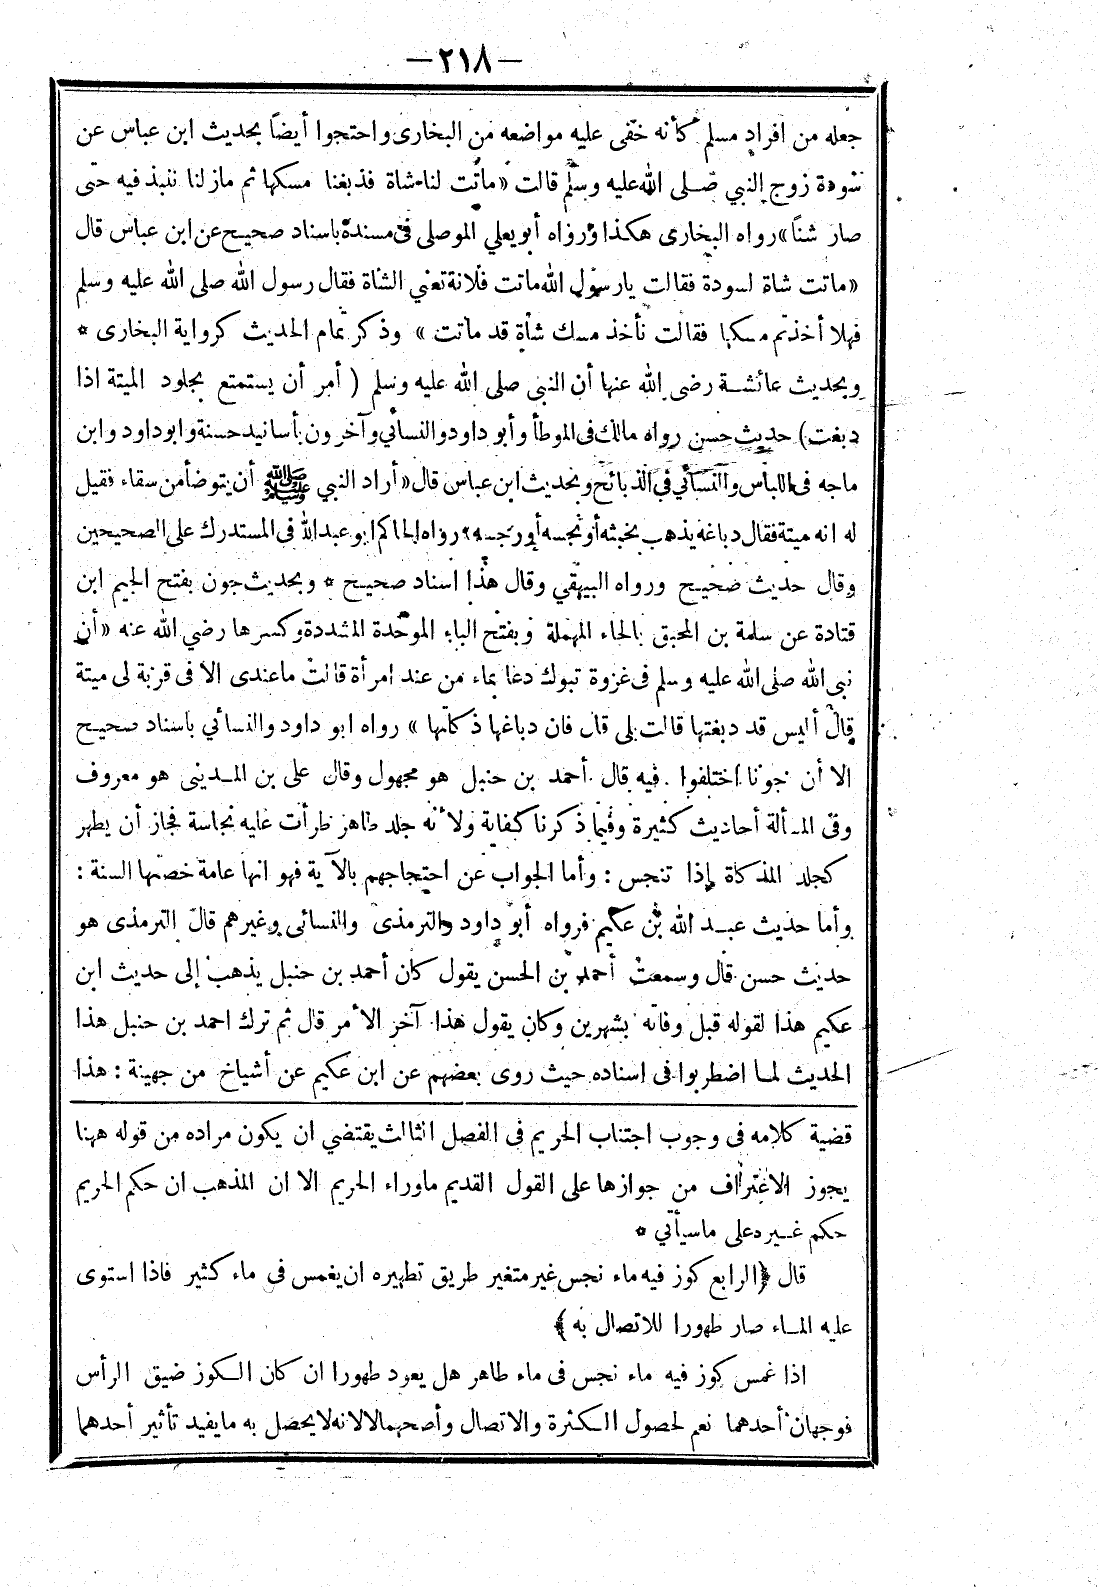 — ٢١٨ —
جعله من افراد مسلم كأنه خفى عليه مواضعه من البخارى واحتجوا أيضاً بحديث ابن عباس عن
سودة زوج النبي صلى الله عليه وسلم قالت «ماتت لنا شاة فدبغنا مسكها ثم مازلنا ننبذ فيه حتى
صار شناً» رواه البخارى هكذا ورواه أبو يعلي الموصلى فى مسنده باسناد صحيح عن ابن عباس قال
«ماتت شاة لسودة فقالت يارسول الله ماتت فلانة تعني الشاة فقال رسول الله صلى الله عليه وسلم
فهلا أخذتم مسكها فقالت نأخذ مسك شاة قد ماتت» وذكر تمام الحديث كرواية البخارى *
وبحديث عائشة رضى الله عنها أن النبى صلى الله عليه وسلم ( أمر أن يستمتع بجلود الميتة اذا
دبغت) حديث حسن رواه مالك فى الموطأ وأبو داود والنسائي وآخرون بأسانيد حسنة وابو داود وابن
ماجه فى اللباس والنسائي في الذبائح وبحديث ابن عباس قال «أراد النبي ﷺ أن يتوضأ من سقاء فقيل
له انه ميتة فقال دباغه يذهب بخبثه أو نجسه أو رجسه» رواه الحاكم ابو عبد الله فى المستدرك على الصحيحين
وقال حديث صحيح ورواه البيهقي وقال هذا اسناد صحيح * وبحديث جون بفتح الجيم ابن
قتادة عن سلمة بن المحبق بالحاء المهملة وبفتح الباء الموحدة المشددة وكسرها رضي الله عنه «أن
نبى الله صلى الله عليه وسلم فى غزوة تبوك دعا بماء من عند امرأة قالت ماعندى الا فى قربة لى ميتة
قال أليس قد دبغتها قالت بلى قال فان دباغها ذكاتها» رواه ابو داود والنسائي باسناد صحيح
الا أن جونا اختلفوا فيه قال أحمد بن حنبل هو مجهول وقال على بن المدينى هو معروف
وفى المسألة أحاديث كثيرة وفيما ذكرنا كفاية ولأنه جلد طاهر طرأت عليه نجاسة فجاز أن يطهر
كجلد المذكاة إذا تنجس : وأما الجواب عن احتجاجهم بالآية فهو انها عامة خصتها السنة :
وأما حديث عبد الله بن عكيم فرواه أبو داود والترمذى والنسائى وغيرهم قال الترمذى هو
حديث حسن قال وسمعت أحمد بن الحسن يقول كان أحمد بن حنبل يذهب إلى حديث ابن
عكيم هذا لقوله قبل وفاته بشهرين وكان يقول هذا آخر الأمر قال ثم ترك احمد بن حنبل هذا
الحديث لما اضطربوا فى اسناده حيث روى بعضهم عن ابن عكيم عن أشياخ من جهينة : هذا
قضية كلامه فى وجوب اجتناب الحريم فى الفصل الثالث يقتضي ان يكون مراده من قوله ههنا
يجوز الاغتراف من جوازها على القول القديم ماوراء الحريم الا ان المذهب ان حكم الحريم
حكم غيره على ماسيأتي *
قال ﴿الرابع كوز فيه ماء نجس غير متغير طريق تطهيره ان يغمس فى ماء كثير فاذا استوى
عليه الماء صار طهورا للاتصال به ﴾
اذا غمس كوز فيه ماء نجس فى ماء طاهر هل يعود طهورا ان كان الكوز ضيق الرأس
فوجهان أحدهما نعم لحصول الكثرة والاتصال وأصحهما لا لانه لا يحصل به مايفيد تأثير أحدهما